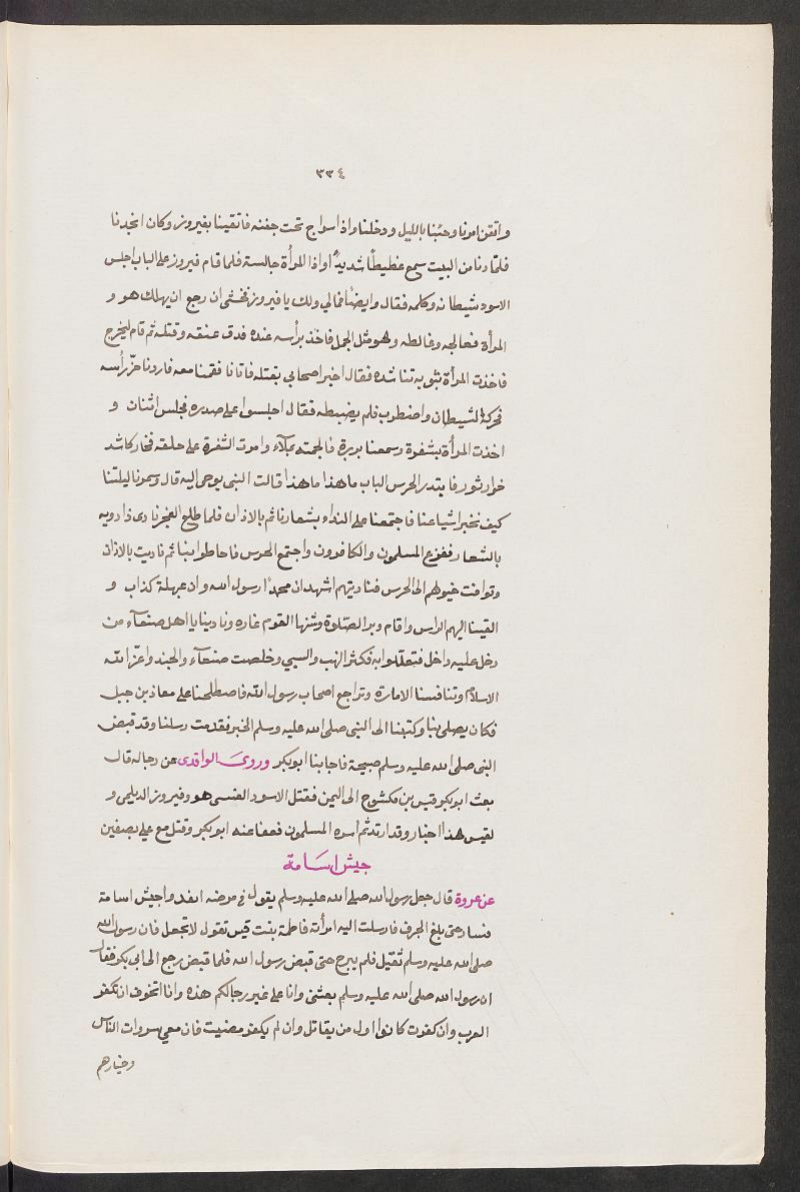 ٣٣٤
واتقن امرنا وجئنا بالليل ودخلنا واذا سراج تحت جفنه فاتقينا بفيروز وكان انجدنا
فلما دنا من البيت سمع غطيطًا شديدًا واذا المرأة جالسة فلما قام فيروز على الباب اجلس
الاسود شيطانه وكلمه فقال وايضًا فمالي ولك يا فيروز فخشى ان رجع ان يهلك هو و
المرأة فعالجه وخالطه وهو مثل الجمل فاخذ برأسه عنده فدق عنقه وقتله ثم قام ليخرج
فاخذت المرأة بثوبه تناشده فقال اخبر اصحابي بقتله فاتانا فقمنا معه فاردنا حزّ رأسه
فحركه الشيطان واضطرب فلم يضبطه فقال اجلسوا على صدره فجلس اثنان و
اخذت المرأة بشفرة وسمعنا بربرة فالجمته بملآء وامرت الشفرة على حلقه فخار كاشد
خوار ثور فابتدر الحرس الباب ما هذا ما هذا قالت النبى يوحى اليه قال وسمرنا ليلتنا
كيف نخبر اشياعنا فاجتمعنا على النداء بشعارنا ثم بالاذان فلما طلع الفجر نادى ذادويه
بالشعار ففزع المسلمون والكافرون واجتمع الحرس فاحاطوا بنا ثم ناديت بالاذان
وتوافت خيولهم الى الحرس فناديتهم اشهد ان محمدًا رسول الله وان عبهلة كذاب و
القينا اليهم الراس واقام وبر الصّلوة وشنها القوم غاره ونادينا يا اهل صنعآء من
دخل عليه داخل فتعلقوا به فكثر النهب والسبي وخلصت صنعآء والجند واعزّ الله
الاسلام وتنافسنا الامارة وتراجع اصحاب رسول الله فاصطلحنا على معاذ بن جبل
فكان يصلى بنا وكتبنا الى النبى صلى الله عليه وسلم الخبر فقدمت رسلنا وقد قبض
النبى صلى الله عليه وسلم صبيحة فاجابنا ابو بكر وروى الواقدى عن رجاله قال
بعث ابو بكر قيس بن مكشوح الى اليمن فقتل الاسود العنسى هو وفيروز الديلمى و
لقيس هذا اخبار وقد ارتد ثم اسره المسلمون فعفا عنه ابو بكر وقتل مع على بصفين
جيش اسامة
عن عروة قال جعل رسول الله صلى الله عليه وسلم يقول فى مرضه انفذوا جيش اسامة
فسار حتى بلغ الجرف فارسلت اليه امرأته فاطمة بنت قيس تقول لا تعجل فان رسول الله
صلى الله عليه وسلم ثقيل فلم يبرح حتى قبض رسول الله فلما قبض رجع الى ابي بكر فقال
ان رسول الله صلى الله عليه وسلم بعثنى وانا على غير رجالكم هذه وانا اتخوف ان تكفر
العرب وان كفرت كانوا اول من يقاتل وان لم يكفر مضيت فان معي سروات الناس
وخيارهم